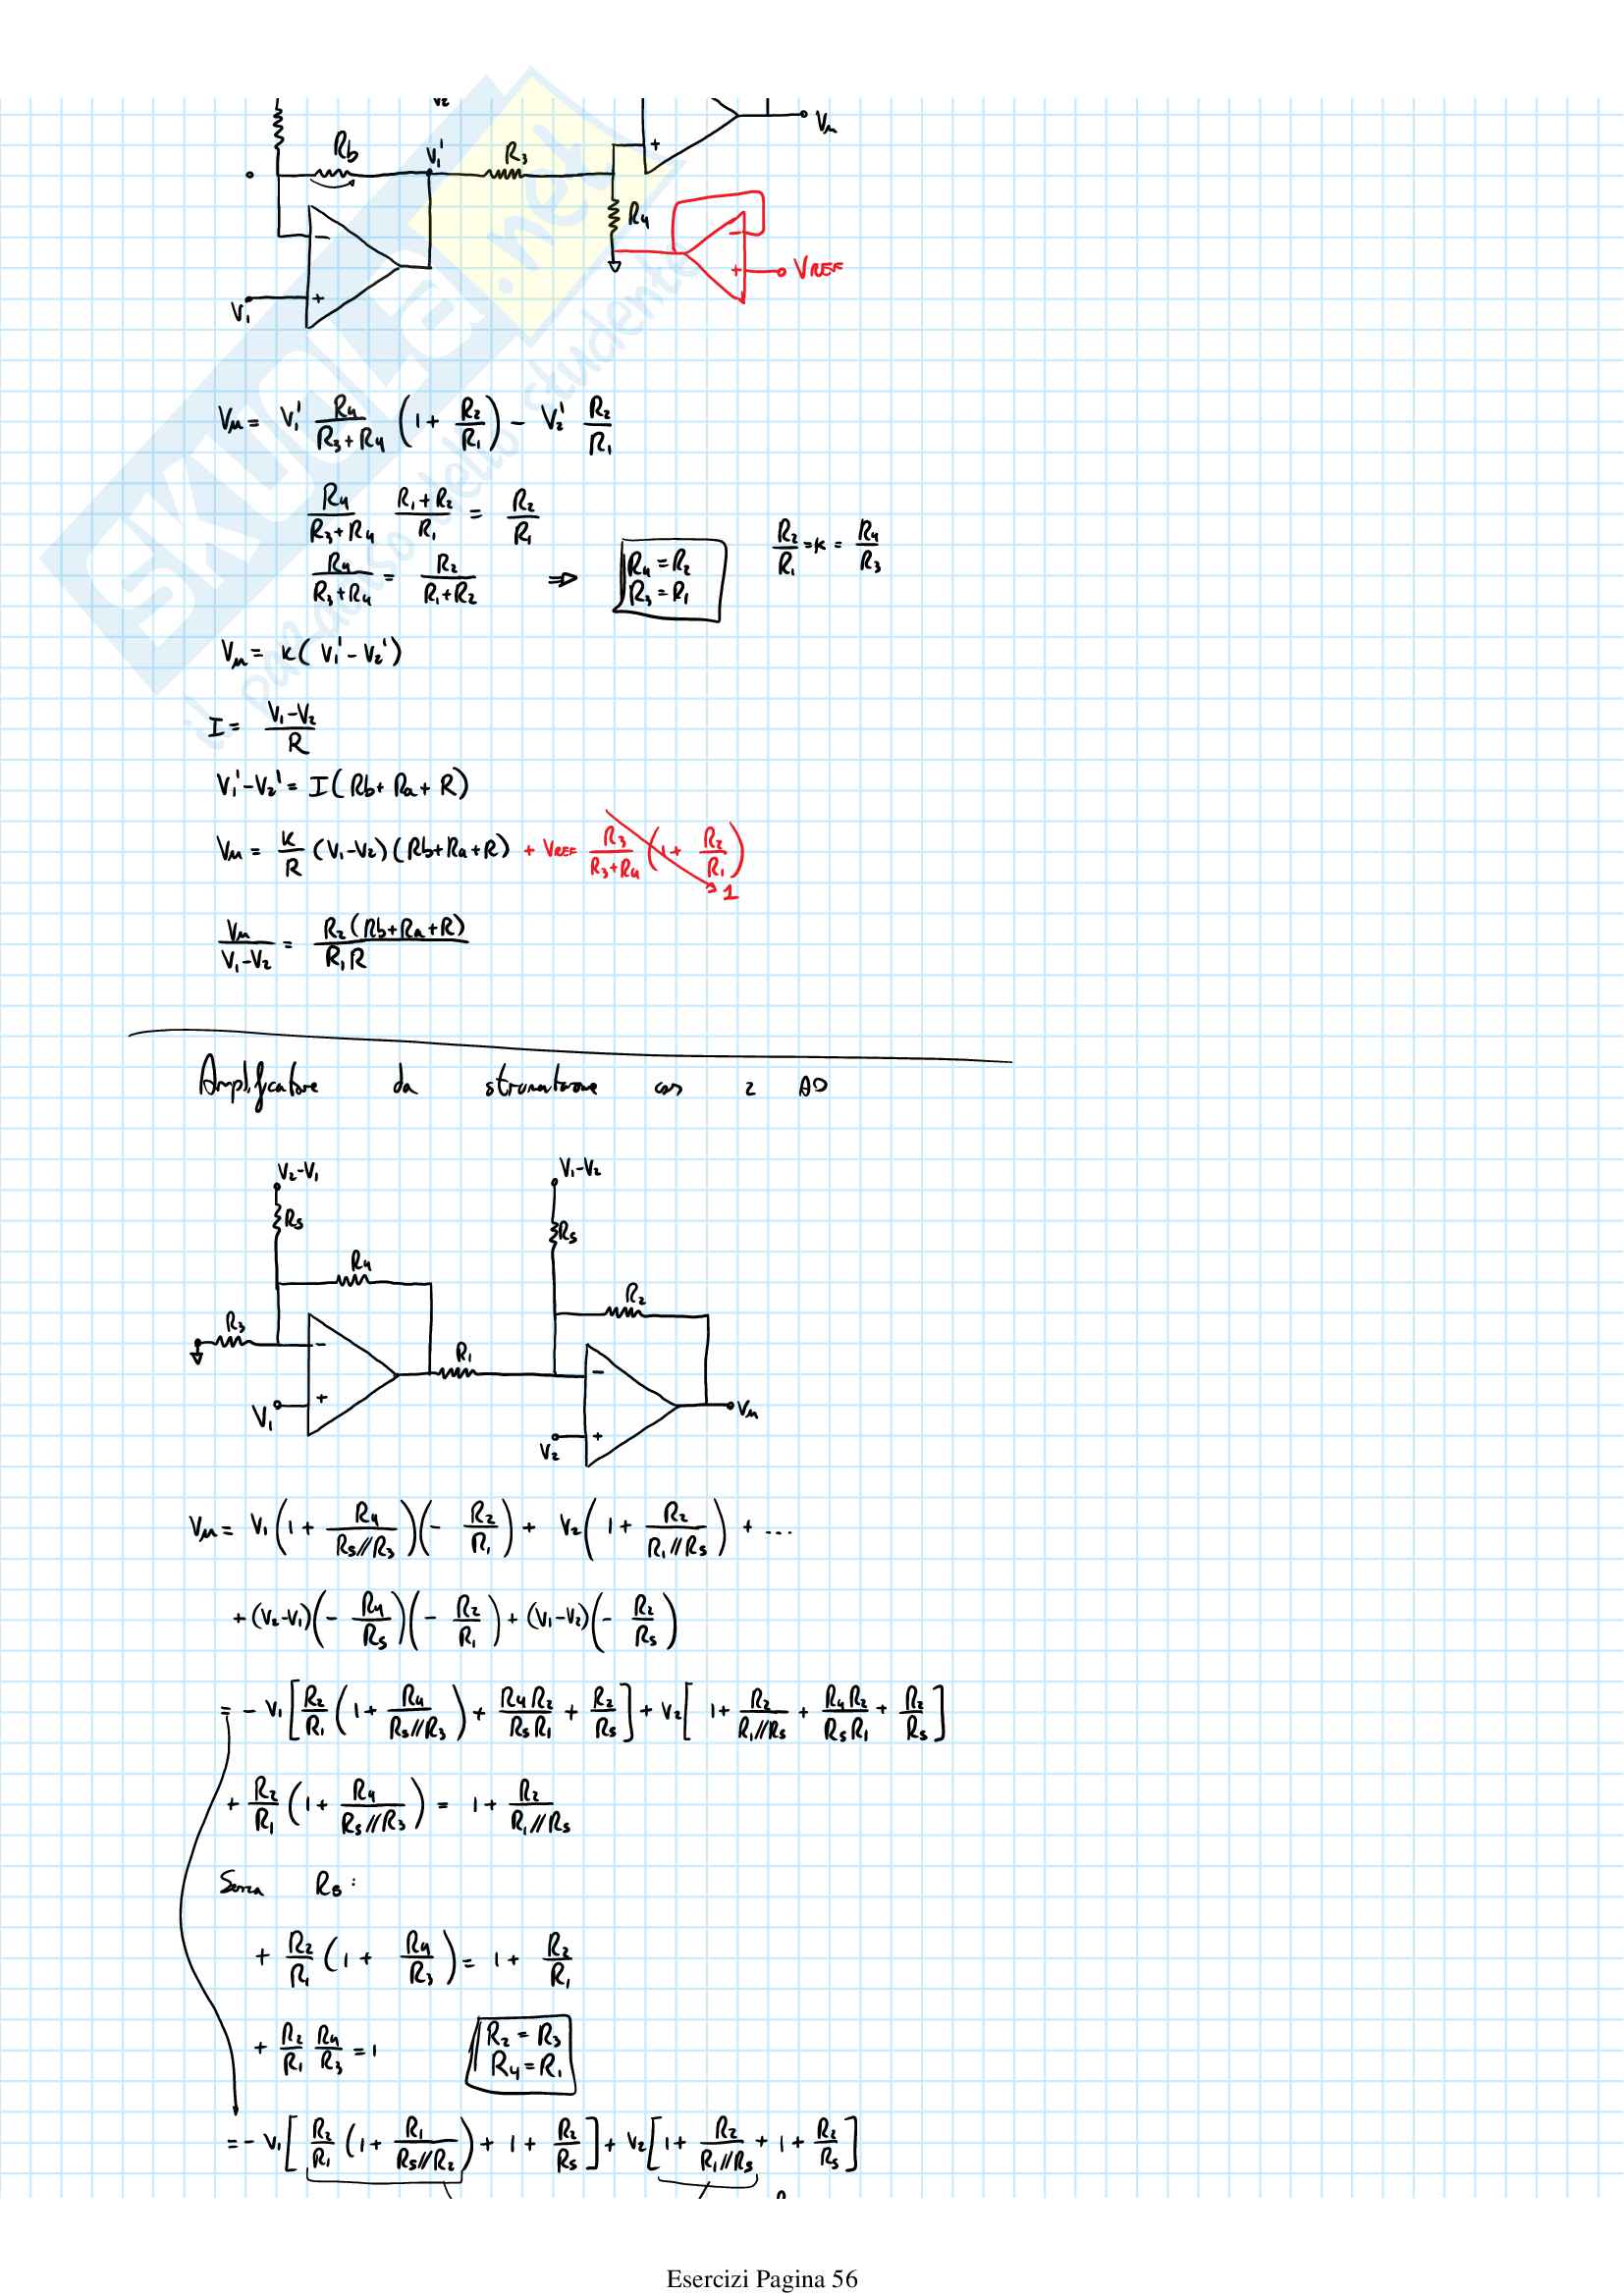 V₂
Vᵤ
Rb
V₁'
R₃
+
R₄
−
−
+
V_REF
V₁
+
SKUOLA.net
il paradiso dello studente
Vᵤ = V₁' R₄/(R₃+R₄) (1 + R₂/R₁) − V₂' R₂/R₁
R₄/(R₃+R₄) (R₁+R₂)/R₁ = R₂/R₁
R₄/(R₃+R₄) = R₂/(R₁+R₂) ⇒ R₄ = R₂
R₃ = R₁
R₂/R₁ = K = R₄/R₃
Vᵤ = K(V₁' − V₂')
I = (V₁−V₂)/R
V₁'−V₂' = I(Rb + Ra + R)
Vᵤ = K/R (V₁−V₂)(Rb+Ra+R) + V_REF R₃/(R₃+R₄) (1 + R₂/R₁) → 1
Vᵤ/(V₁−V₂) = R₂(Rb+Ra+R)/(R₁R)
Amplificatore da strumentazione con 2 AO
V₂−V₁
V₁−V₂
Rs
Rs
R₄
R₂
R₃
−
R₁
−
+
V₁
Vᵤ
V₂
+
Vᵤ = V₁(1 + R₄/(Rs//R₃))(− R₂/R₁) + V₂(1 + R₂/(R₁//Rs)) + ...
+ (V₂−V₁)(− R₄/Rs)(− R₂/R₁) + (V₁−V₂)(− R₂/Rs)
= − V₁[R₂/R₁ (1 + R₄/(Rs//R₃)) + R₄R₂/(RsR₁) + R₂/Rs] + V₂[1 + R₂/(R₁//Rs) + R₄R₂/(RsR₁) + R₂/Rs]
+ R₂/R₁ (1 + R₄/(Rs//R₃)) = 1 + R₂/(R₁//Rs)
Senza Rs:
+ R₂/R₁ (1 + R₄/R₃) = 1 + R₂/R₁
+ R₂/R₁ R₄/R₃ = 1
R₂ = R₃
R₄ = R₁
= − V₁[R₂/R₁ (1 + R₁/(Rs//R₂)) + 1 + R₂/Rs] + V₂[1 + R₂/(R₁//Rs) + 1 + R₂/Rs]
Esercizi Pagina 56